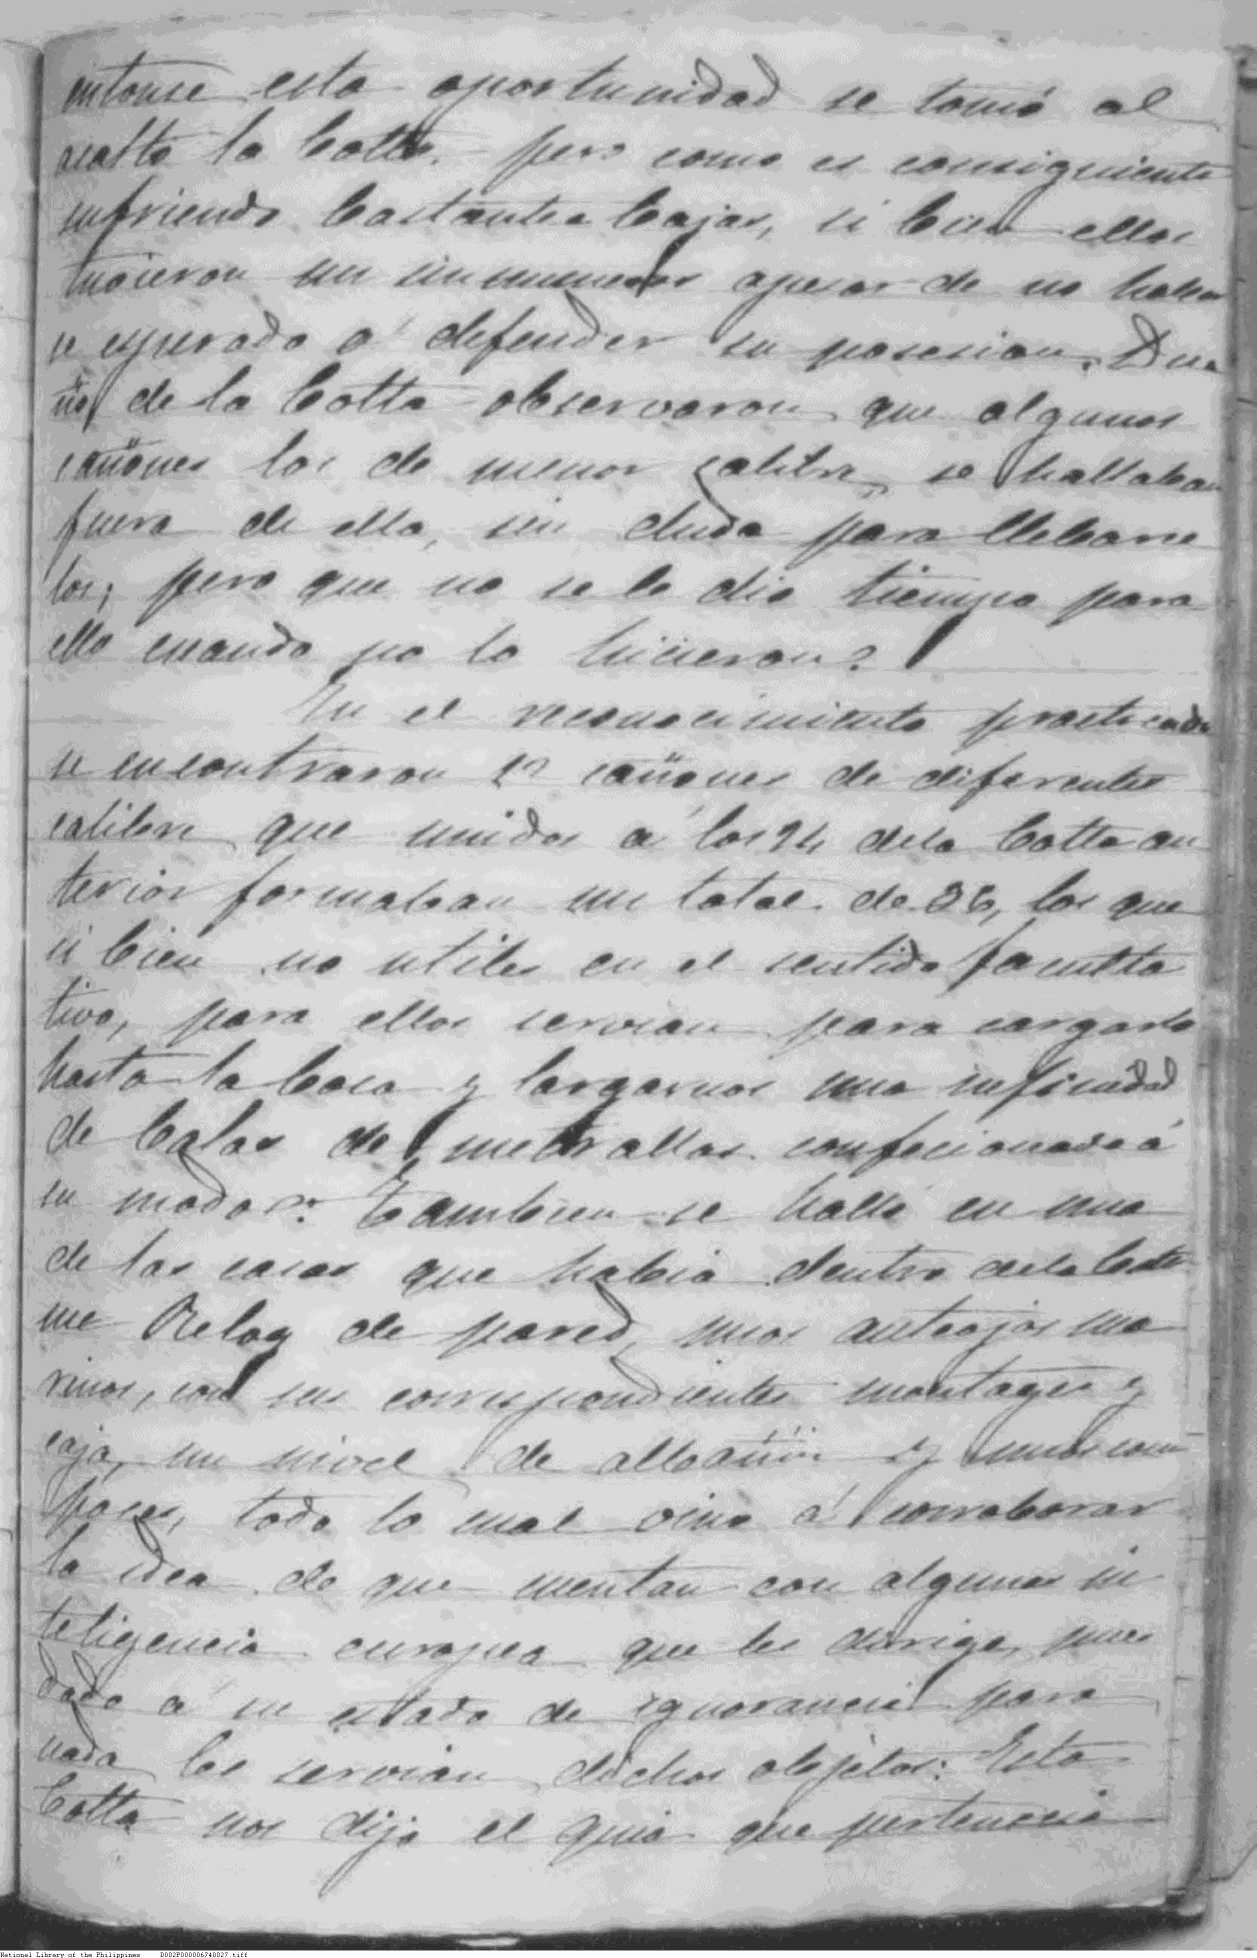 entonse esta oportunidad se tomó al
asalto la Cotta. pero como es consiguiente
sufriendo bastantes bajas, si bien ellos
tuvieron un sin numero apesar de no haber
se esperado á defender su posesion. Due
ños de la Cotta observaron que algunos
cañones los de menor calibre, se hallaban
fuera de ella, sin duda para llebarse
los; pero que no se le dio tiempo para
ello cuando no lo hicieron?
En el reconocimiento practicado
se encontraron 12 cañones de diferentes
calibre que unidos á los 24 dela Cotta an
terior formaban un total de 36, los que
si bien no utiles en el sentido faculta
tivo, para ellos servian para cargarlo
hasta la boca y largarnos una infinidad
de balas de metrallas confecionadas á
su modo: Tambien se halló en una
de las casas que habia dentro dela Cotta
un Relog de pared, unos anteojos ma
rinos, con sus correspondientes montages y
caja, un nivel de albañil y unos com
pases, todo lo cual vino á corroborar
la idea de que cuentan con alguna in
teligencia europea que les dirige, pues
dado á su estado de ignorancia para
nada les servian dichos objetos: Esta
Cotta nos dijo el guia que pertenecia
National Library of the Philippines D002P000006740027.tiff